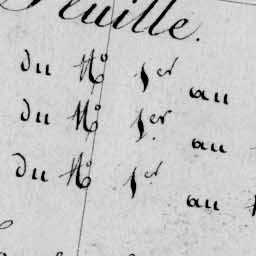 Feuille.
du N.º 1.er au
du N.º 1.er au
du N.º 1.er au